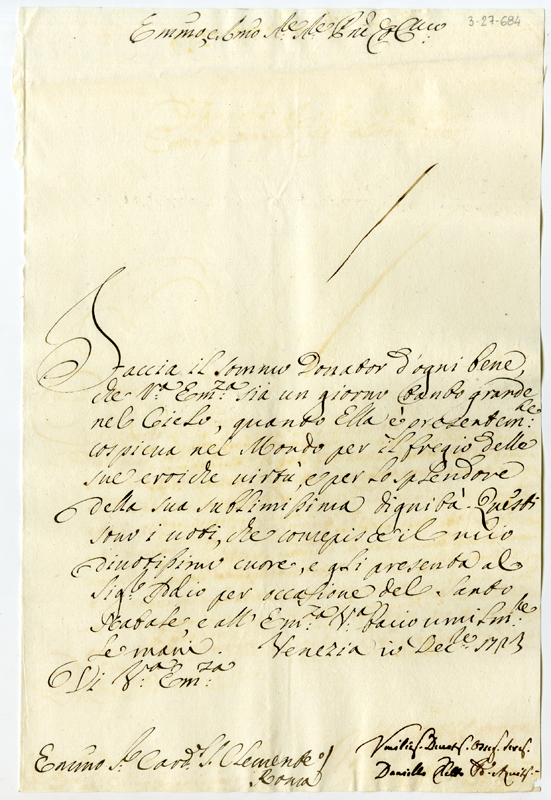 3-27-684
Emmo, e Rmo
Faccia il sommo Donator d'ogni bene,
che V.ª Em.za sia un giorno tanto grande
nel Cielo, quanto Ella è presentem.te
cospicua nel Mondo per il fregio delle
sue eroiche virtù, e per lo splendore
della sua sublimissima dignità. Questi
sono i voti, che concepisce il mio
divotissimo cuore, e gli presenta al
Sig.r Iddio per occasione del Santo
Natale, e all' Em.za V.ª bacio umilm.te
le mani. Venezia 10 Dec.re 1723
Di V.ª Em.za
Emmo Sr. Card. S. Clemente
Roma
Daniello